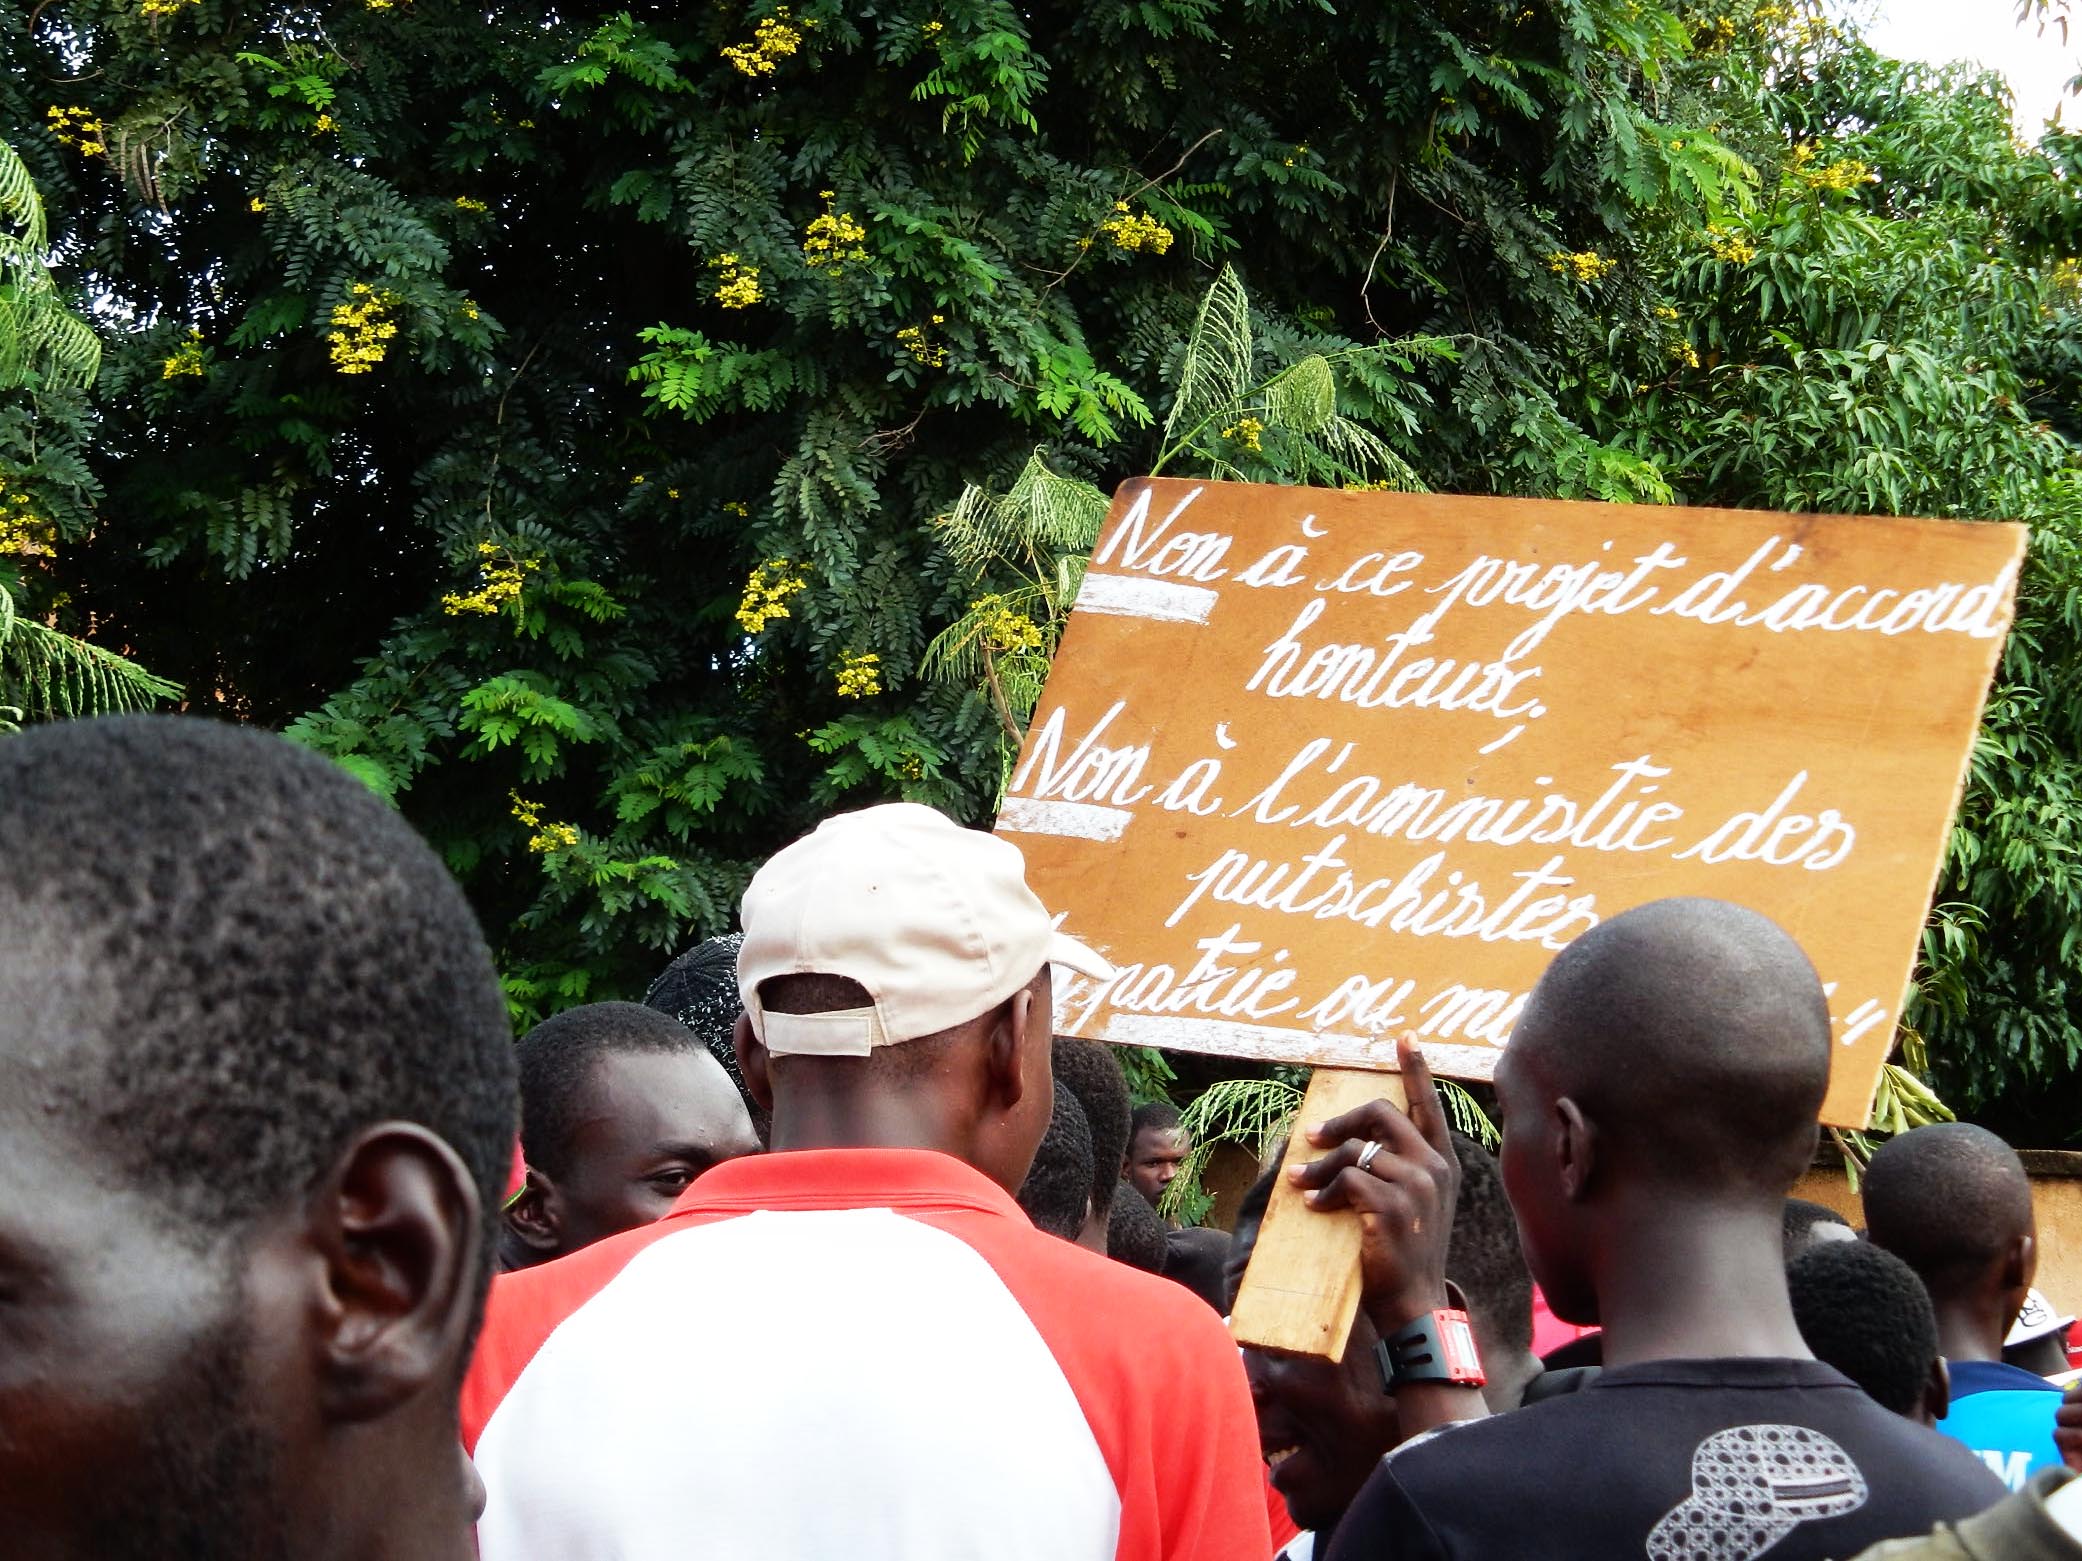 Non à ce projet d'accord
honteux;
Non à l'amnistie des
putschistes
patrie ou